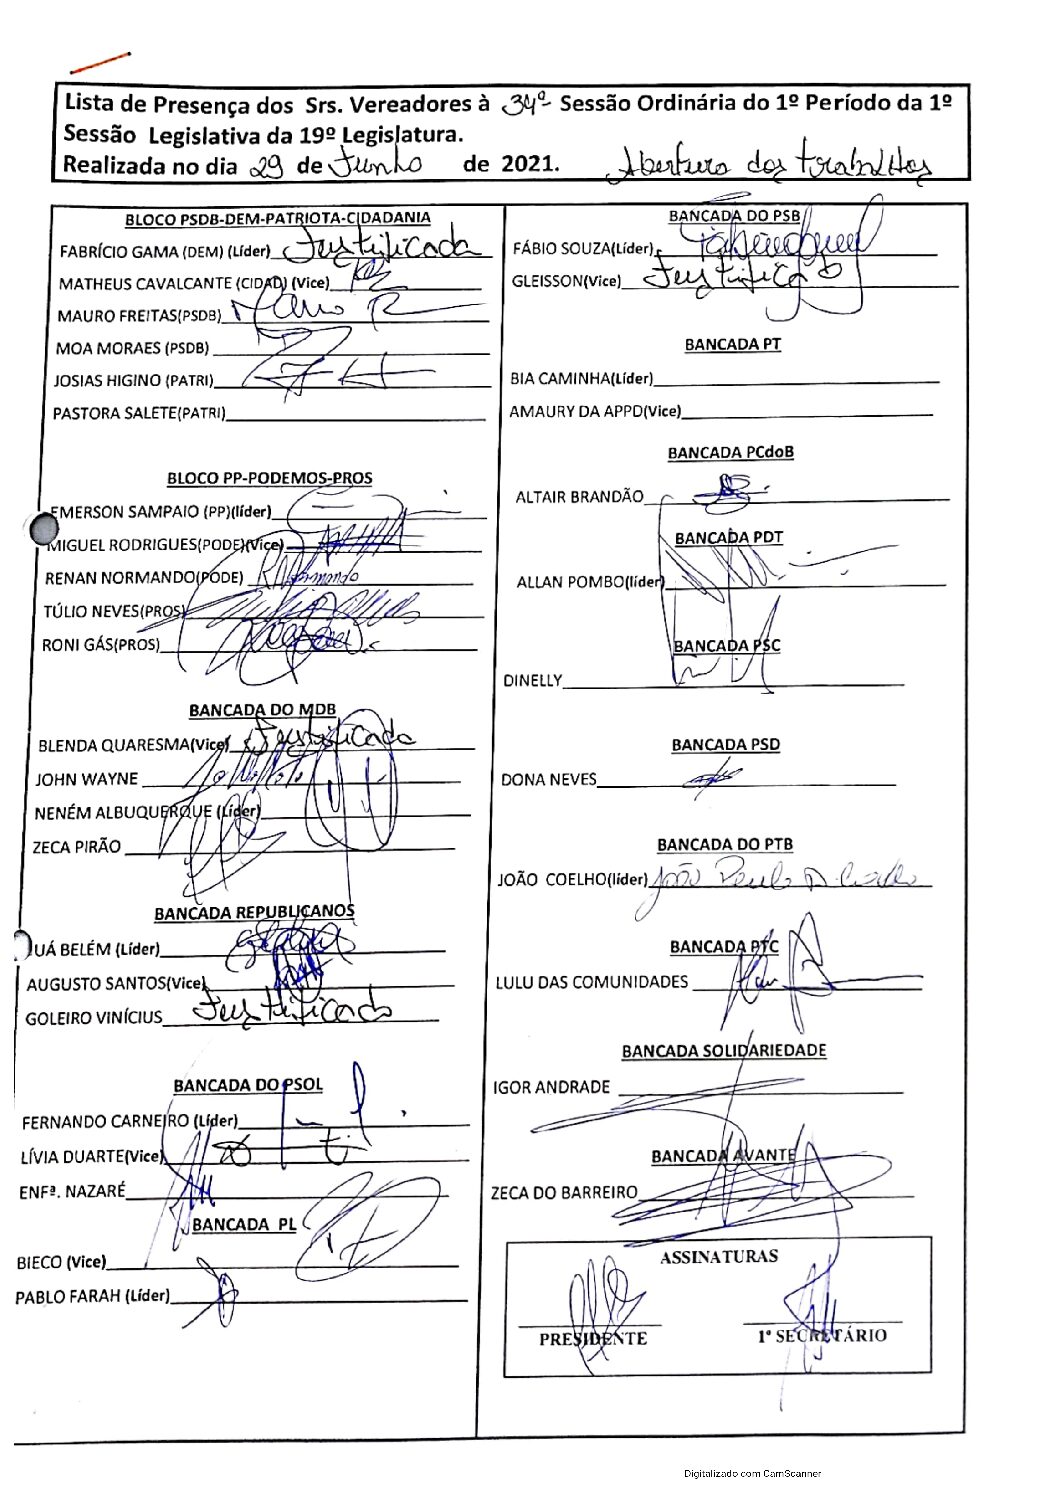 Lista de Presença dos Srs. Vereadores à 34ª Sessão Ordinária do 1º Período da 1º
Sessão Legislativa da 19º Legislatura.
Realizada no dia 29 de Junho de 2021. Abertura dos trabalhos
BLOCO PSDB-DEM-PATRIOTA-CIDADANIA
FABRÍCIO GAMA (DEM) (Líder) Justificada
MATHEUS CAVALCANTE (CIDAD) (Vice)
MAURO FREITAS(PSDB) Mauro
MOA MORAES (PSDB)
JOSIAS HIGINO (PATRI)
PASTORA SALETE(PATRI)
BLOCO PP-PODEMOS-PROS
EMERSON SAMPAIO (PP)(líder)
MIGUEL RODRIGUES(PODE)(Vice)
RENAN NORMANDO(PODE) Normando
TÚLIO NEVES(PROS)
RONI GÁS(PROS)
BANCADA DO MDB
BLENDA QUARESMA(Vice) Justificada
JOHN WAYNE
NENÉM ALBUQUERQUE (Líder)
ZECA PIRÃO
BANCADA REPUBLICANOS
UÁ BELÉM (Líder)
AUGUSTO SANTOS(Vice)
GOLEIRO VINÍCIUS Justificado
BANCADA DO PSOL
FERNANDO CARNEIRO (Líder)
LÍVIA DUARTE(Vice)
ENFª. NAZARÉ
BANCADA PL
BIECO (Vice)
PABLO FARAH (Líder)
BANCADA DO PSB
FÁBIO SOUZA(Líder)
GLEISSON(Vice) Justificado
BANCADA PT
BIA CAMINHA(Líder)
AMAURY DA APPD(Vice)
BANCADA PCdoB
ALTAIR BRANDÃO
BANCADA PDT
ALLAN POMBO(líder)
BANCADA PSC
DINELLY
BANCADA PSD
DONA NEVES
BANCADA DO PTB
JOÃO COELHO(líder) João Paulo
BANCADA PTC
LULU DAS COMUNIDADES
BANCADA SOLIDARIEDADE
IGOR ANDRADE
BANCADA AVANTE
ZECA DO BARREIRO
ASSINATURAS
PRESIDENTE 1º SECRETÁRIO
Digitalizado com CamScanner